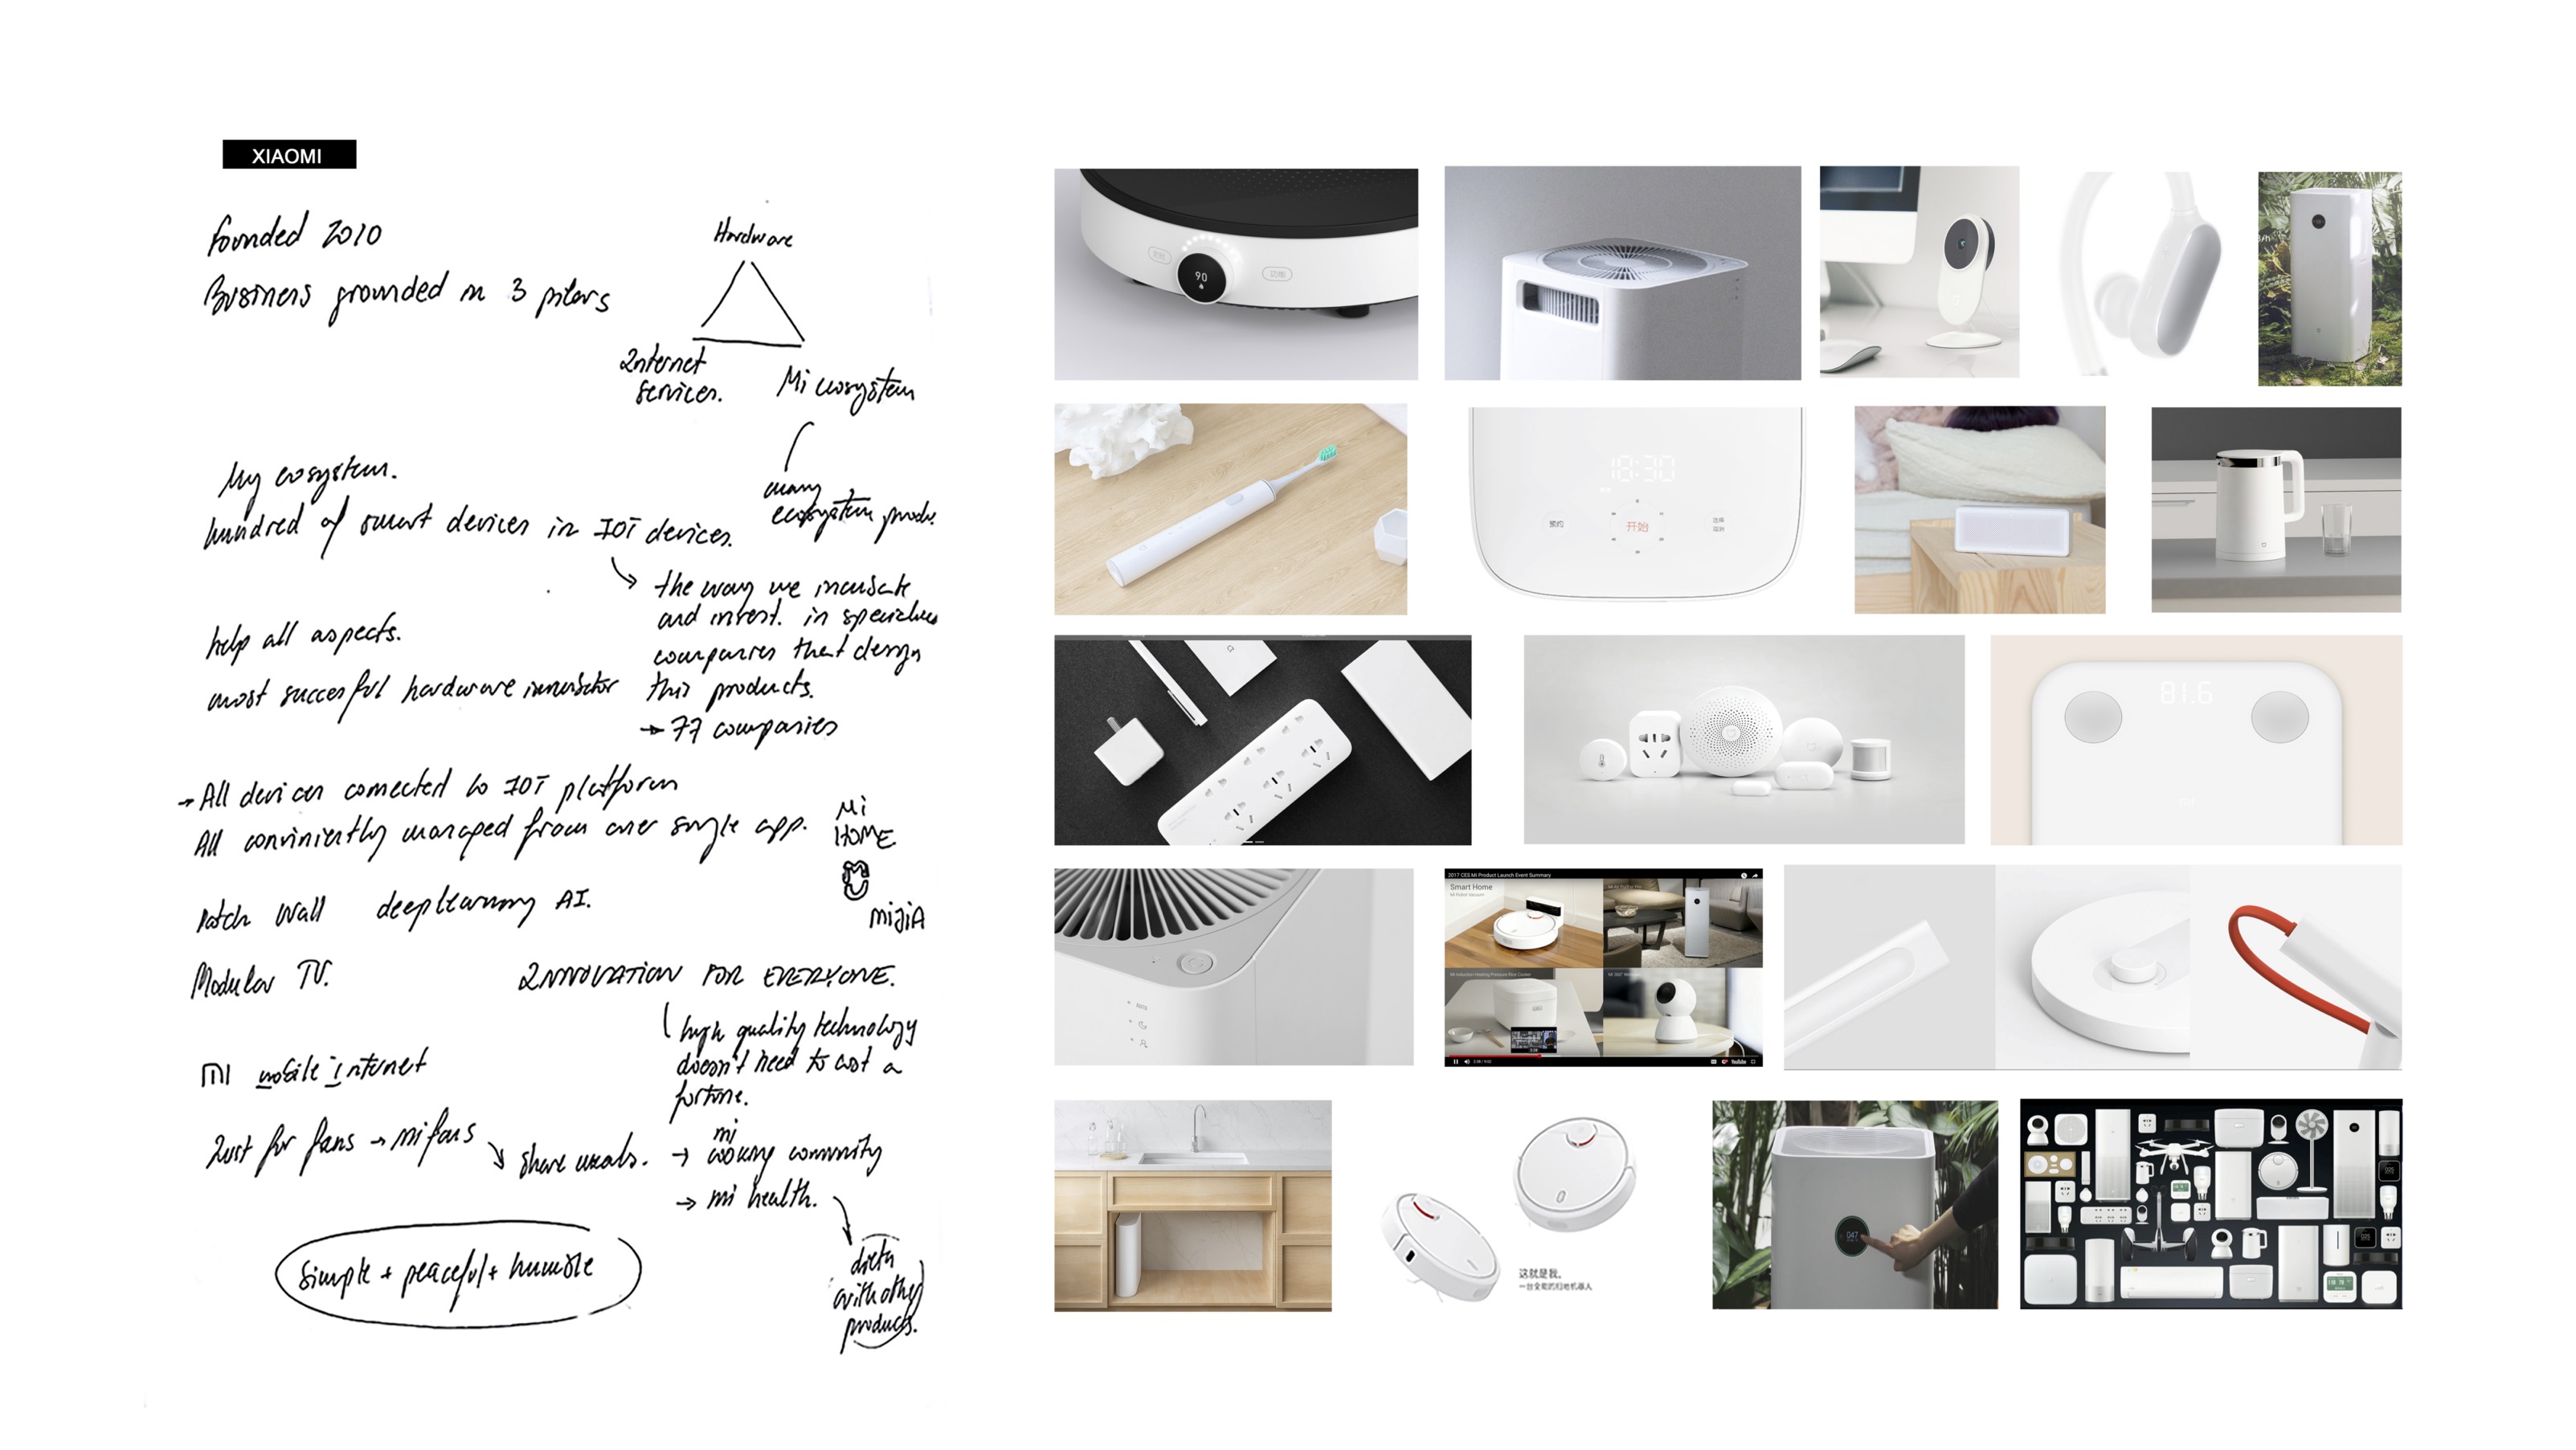 XIAOMI
founded 2010
Business grounded in 3 pilars
Hardware
Internet
services.
Mi ecosystem
many
ecosystem produ.
My ecosystem.
hundred of smart devices in IOT devices.
the way we incubate
and invest. in
companies that design
this products.
→ 77 companies
help all aspects.
most succesful hardware incubator
→ All devices conected to IOT platform
All conviniently managed from over single app.
Mi
HOME
mijiA
Patch Wall deeplearning AI.
Modular TV.
INNOVATION FOR EVERYONE.
high quality technology
doesn't need to cost a
fortune.
MI mobile internet
Just for fans → mi fans
share meals.
mi
→ cooking community
→ mi health.
data
with other
products.
Simple + peaceful + humble
90
功能
18:30
预约
开始
81.6
2017 CES Mi Product Launch Event Summary
Smart Home
Mi Robot Vacuum
Mi Induction Heating Pressure Rice Cooker
YouTube
这就是我。
一台全能的扫地机器人
047